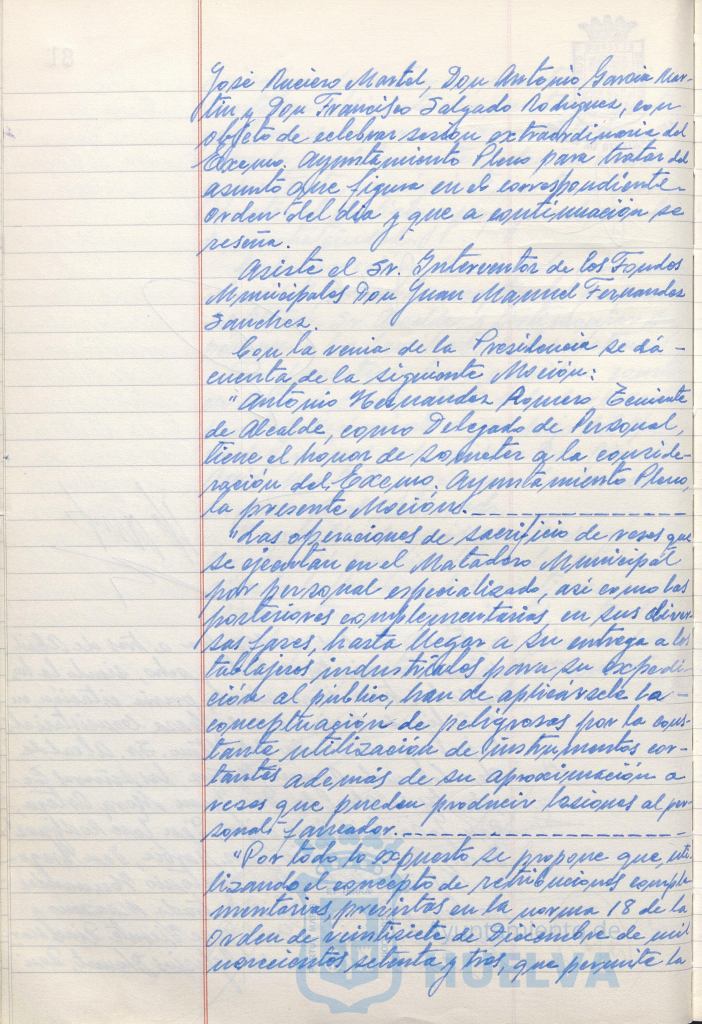 José Ruciero Martel, Don Antonio Garcia Mar-
tin y Don Francisco Salgado Rodriguez, con
objeto de celebrar sesión extraordinaria del
Excmo. Ayuntamiento Pleno para tratar del
asunto que figura en el correspondiente
orden del dia y que a continuación se
reseña.
Asiste el Sr. Interventor de los Fondos
Municipales Don Juan Manuel Fernandez
Sanchez.
Con la venia de la Presidencia se dá
cuenta de la siguiente Moción:
"Antonio Hernandez Romero Teniente
de Alcalde, como Delegado de Personal,
tiene el honor de someter a la conside-
ración del Excmo. Ayuntamiento Pleno,
la presente Moción.
"Las operaciones de sacrificio de reses que
se ejecutan en el Matadero Municipal
por personal especializado, asi como las
posteriores complementarias, en sus diver-
sas fases, hasta llegar a su entrega a los
tablajeros industriales para su expedi-
ción al público, han de aplicársele la
conceptuación de peligrosas por la cons-
tante utilización de instrumentos cor-
tantes además de su aproximación a
reses que pueden producir lesiones al per-
sonal faenador.
"Por todo lo expuesto se propone que uti-
lizando el concepto de retribuciones comple-
mentarias, previstas en la norma 18 de la
Orden de veintisiete de Diciembre de mil
novecientos setenta y tres, que permite la
Ayuntamiento de
HUELVA